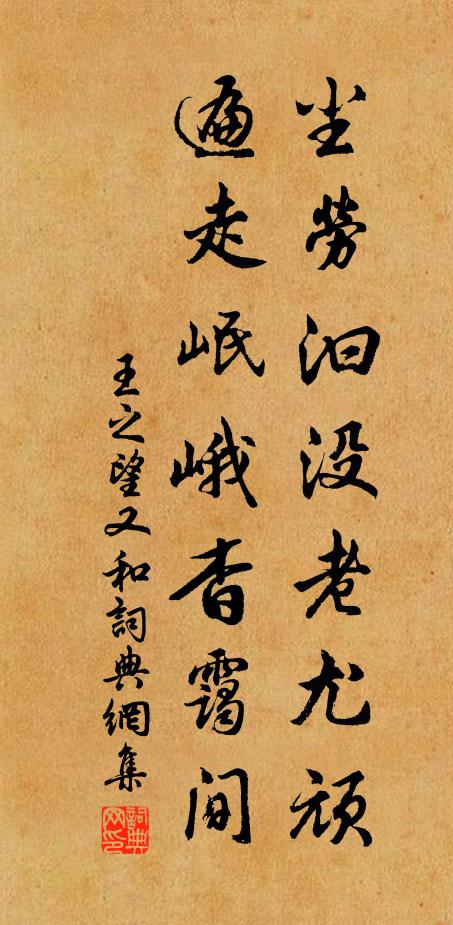 尘劳汩没老尤顽
遍走岷峨杳霭间
王之望又和词典網集
詞典網印